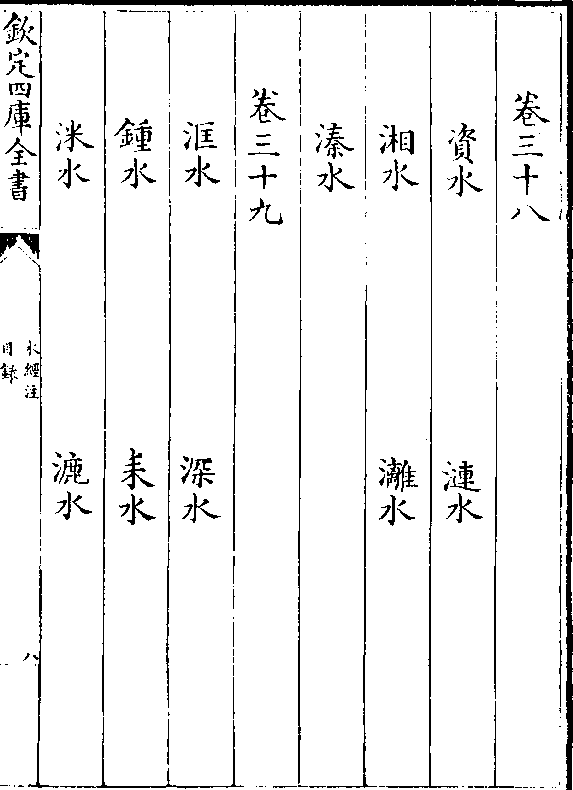 卷三十八
資水 漣水
湘水 灕水
溱水
卷三十九
洭水 深水
鍾水 耒水
洣水 漉水
欽定四庫全書
水經注
目錄
八